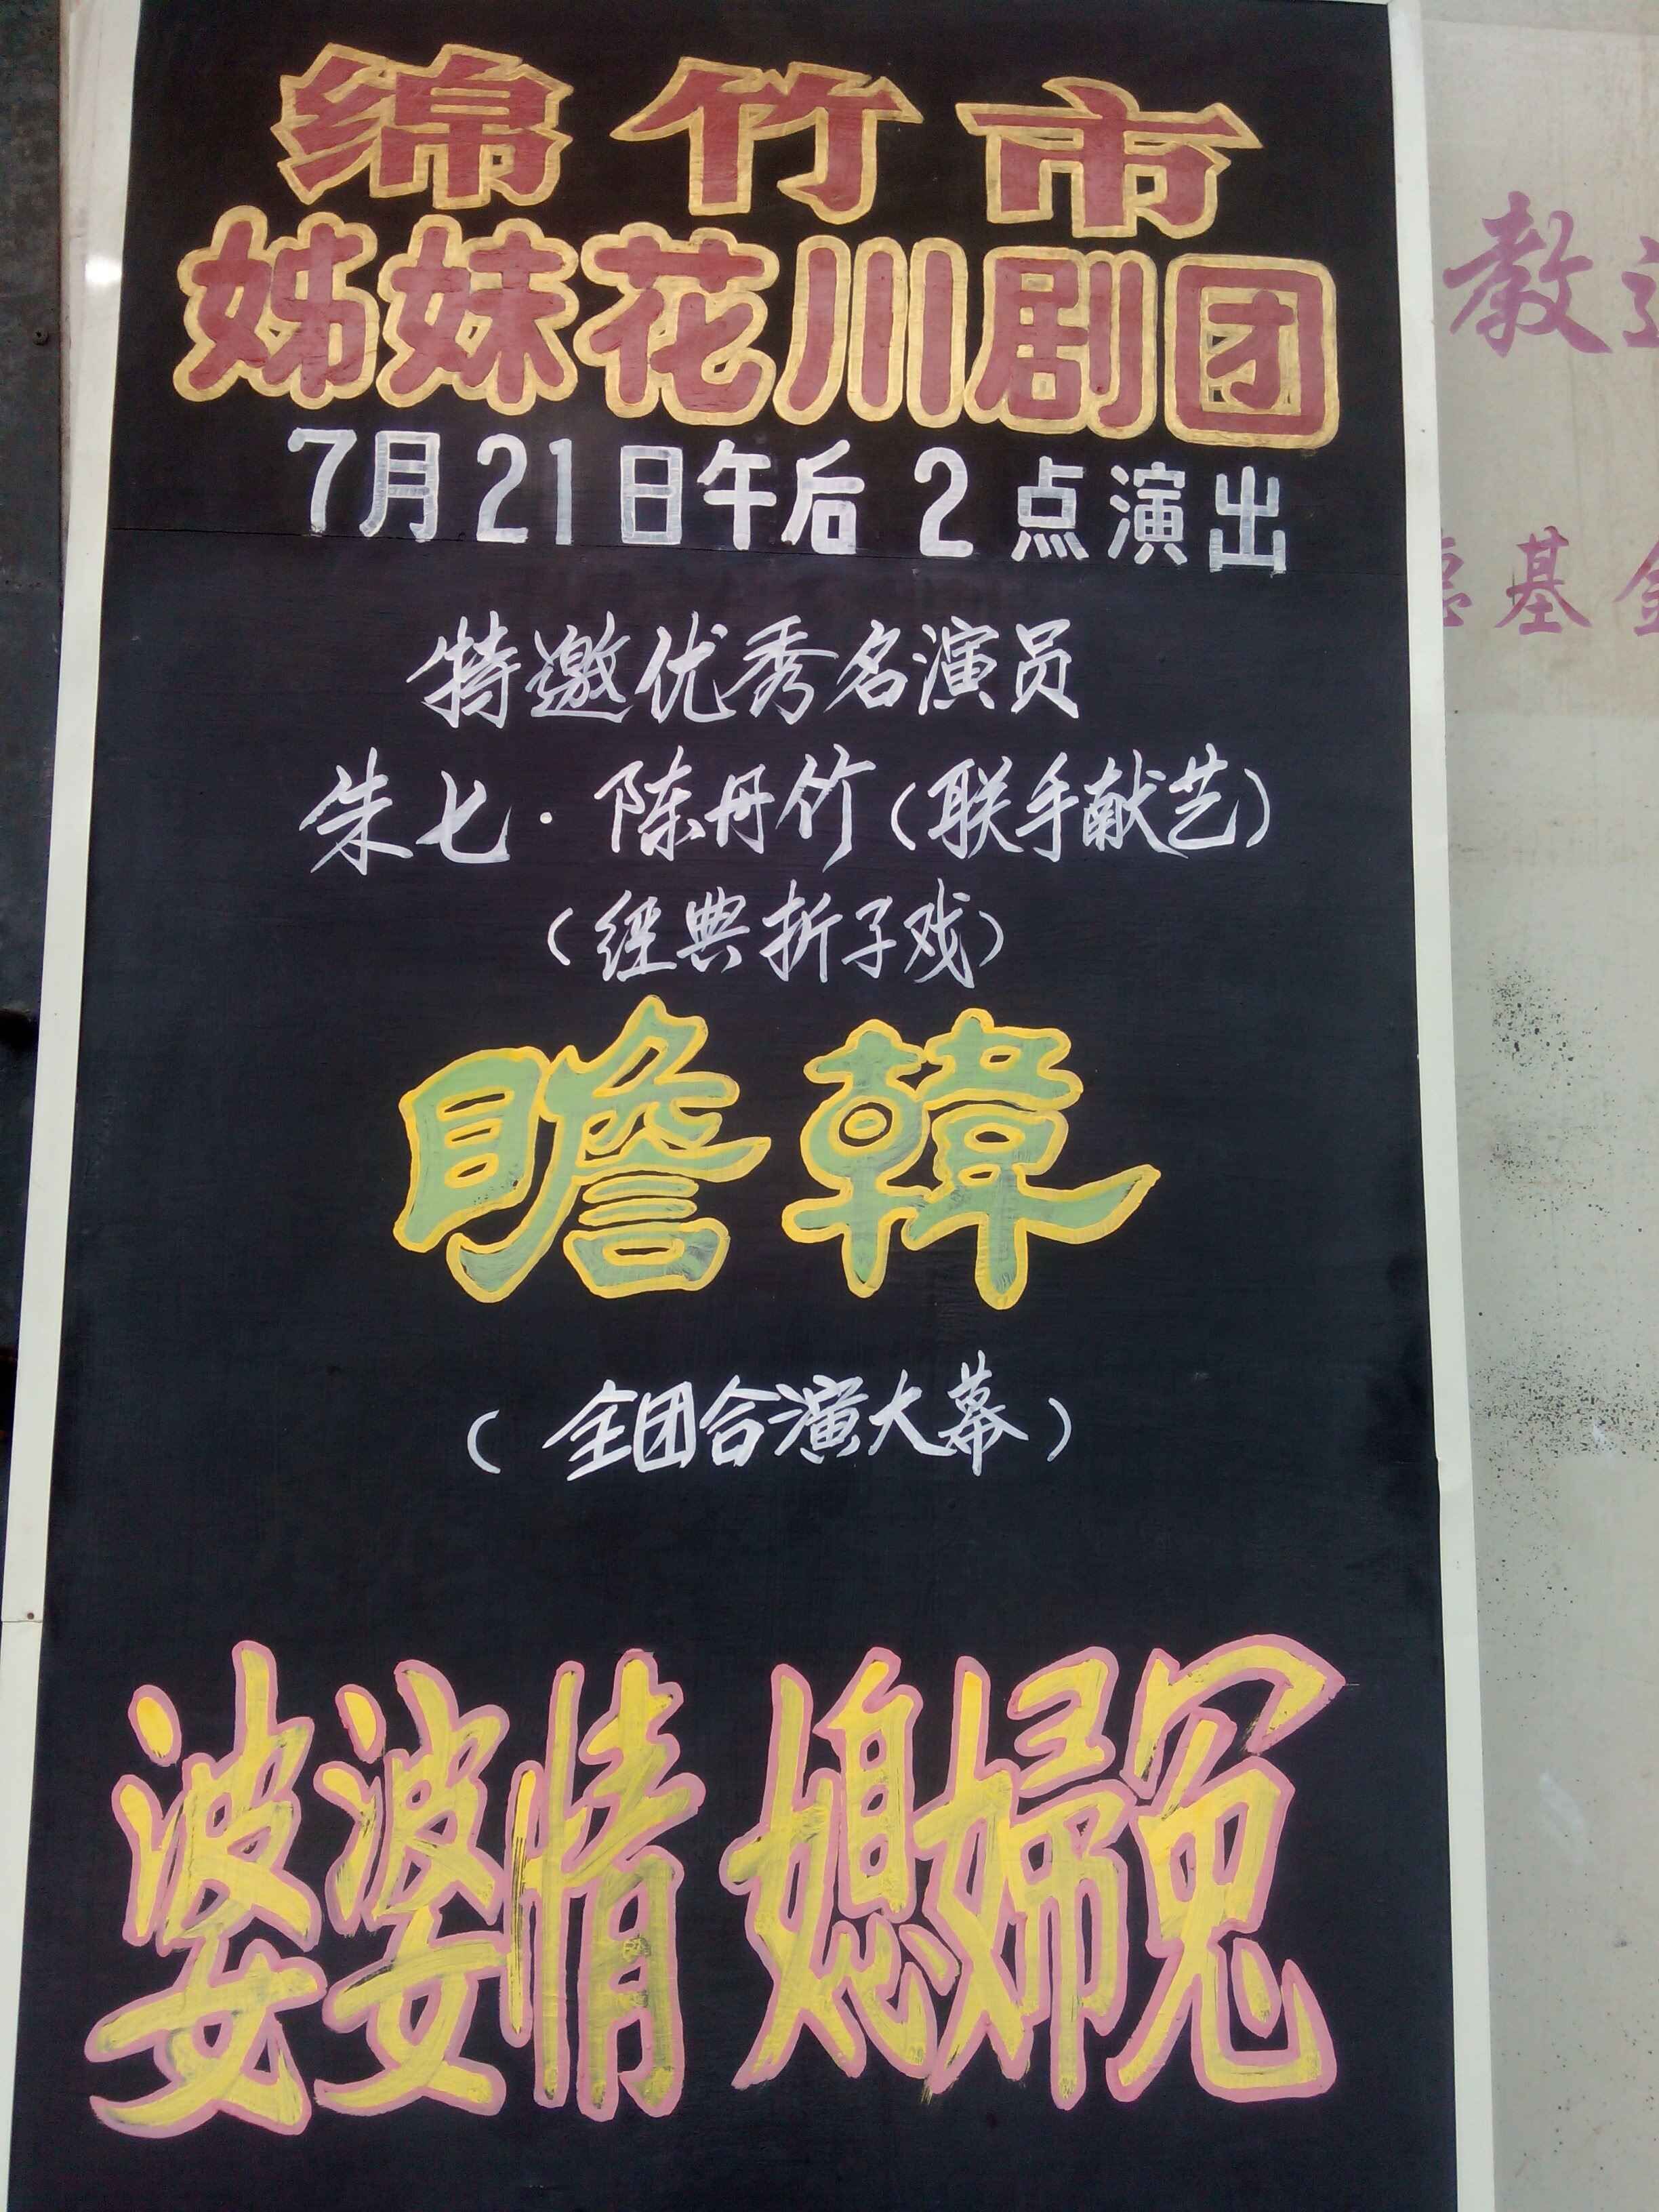 绵竹市
姊妹花川剧团
7月21日午后2点演出
特邀优秀名演员
朱七·陈丹竹(联手献艺)
(经典折子戏)
瞻韓
(全团合演大幕)
婆婆情 媳婦冤
教
基金